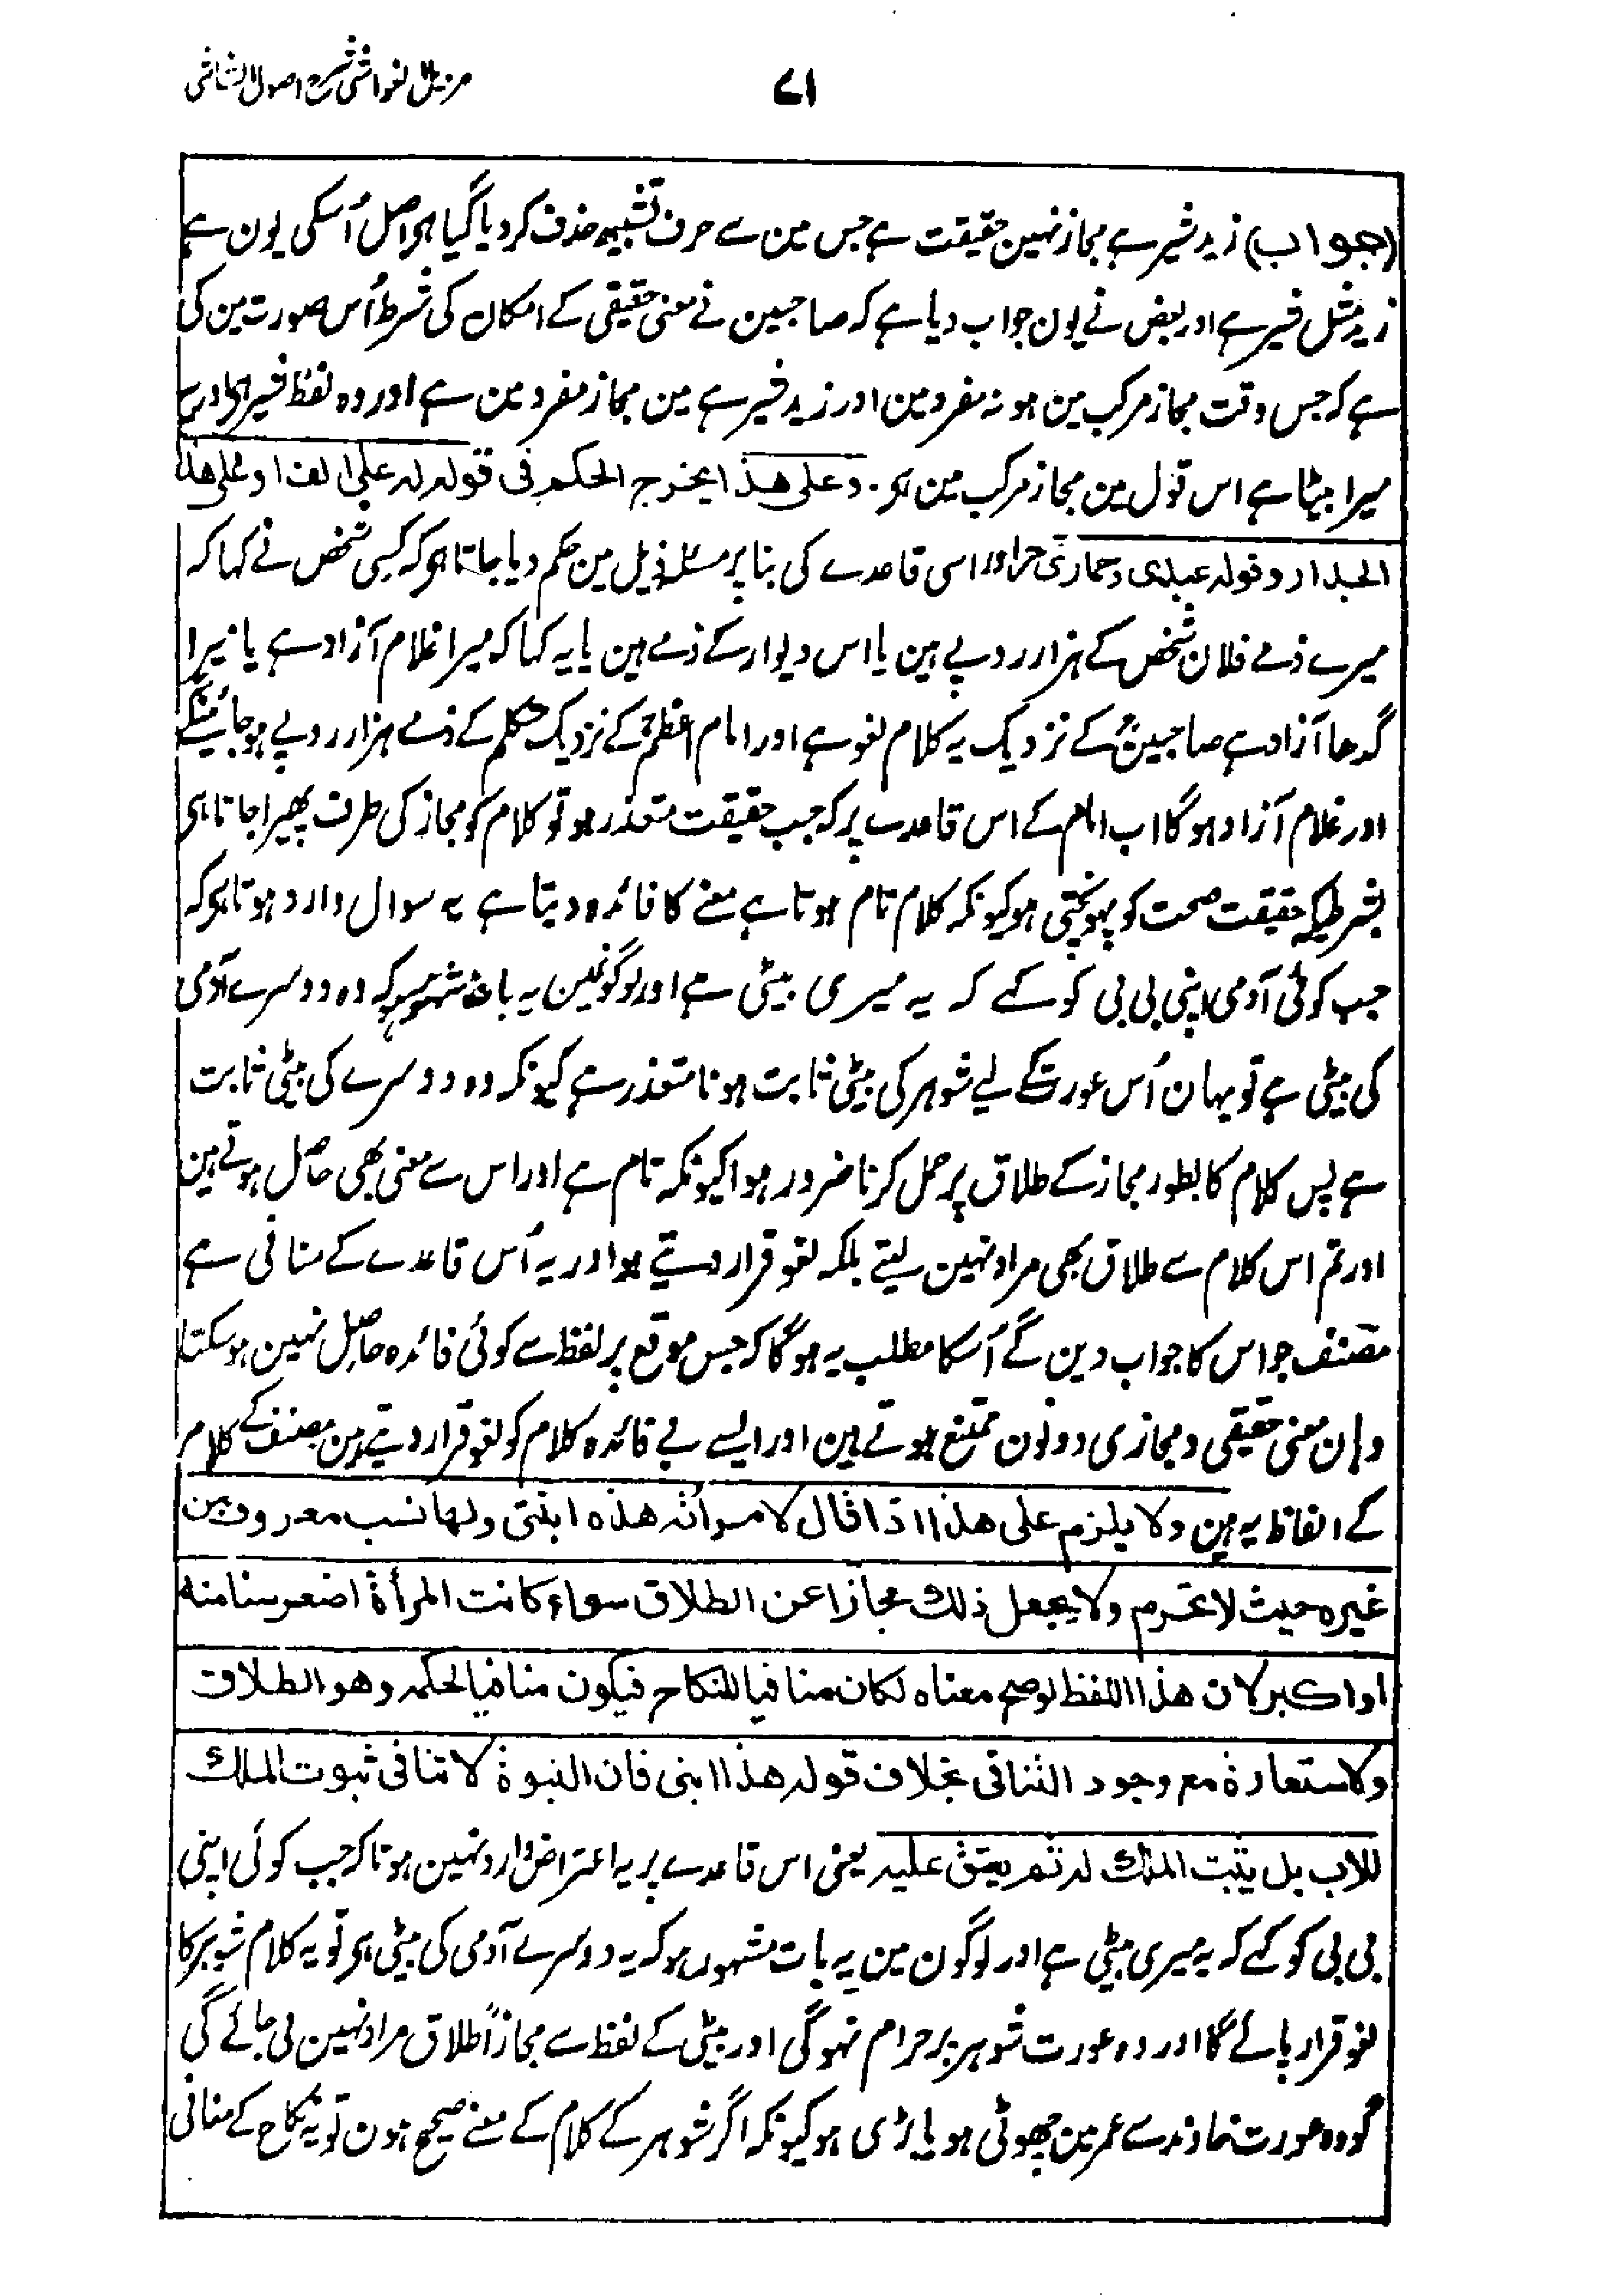 مزیل الغواشی شرح اصول الشاشی
۷۱
(جواب) زید شیر ہے مجاز نہین حقیقت ہے جس مین سے حرف تشبیہ حذف کر دیا گیا ہی اصل اُسکی یون ہے
زید مثل شیر ہے اور بعض نے یون جواب دیا ہے کہ صاحبین نے معنی حقیقی کے امکان کی شرط اُس صورت مین کی
ہے کہ جس وقت مجاز مرکب مین ہو نہ مفرد مین اور زید شیر ہے مین مجاز مفرد مین ہے اور وہ لفظ شیر ہی اور یہ
میرا بیٹا ہے اس قول مین مجاز مرکب مین ہی۔ وعلی هذا یخرج الحکم فی قوله له علی الف او علی هذا
الجدار وقوله عبدی وحماری حر اور اسی قاعدے کی بنا پر مسئلہ ذیل مین حکم دیا جاتا ہو کہ کسی شخص نے کہا کہ
میرے ذمے فلان شخص کے ہزار روپے ہین یا اس دیوار کے ذمے ہین یا یہ کہا کہ میرا غلام آزاد ہے یا میرا
گدھا آزاد ہے صاحبینؒ کے نزدیک یہ کلام لغو ہے اور امام اعظمؒ کے نزدیک متکلم کے ذمے ہزار روپے ہو جائینگے
اور غلام آزاد ہوگا اب امام کے اس قاعدے پر کہ جب حقیقت متعذر ہو تو کلام کو مجاز کی طرف پھیرا جاتا ہی
بشرطیکہ حقیقت صحت کو پہونچتی ہو کیونکہ کلام تام ہوتا ہے معنے کا فائدہ دیتا ہے یہ سوال وارد ہوتا ہو کہ
جب کوئی آدمی اپنی بی بی کو کہے کہ یہ میری بیٹی ہے اور لوگونمین یہ بات مشہور ہو کہ وہ دوسرے آدمی
کی بیٹی ہے تو یہان اُس عورت کے لیے شوہر کی بیٹی ثابت ہونا متعذر ہے کیونکہ وہ دوسرے کی بیٹی ثابت
ہے پس کلام کا بطور مجاز کے طلاق پر حمل کرنا ضرور ہوا کیونکہ تام ہے اور اس سے معنی بھی حاصل ہوتے ہین
اور تم اس کلام سے طلاق بھی مراد نہین لیتے بلکہ لغو قرار دیتے ہو اور یہ اُس قاعدے کے منافی ہے
مصنف جو اس کا جواب دین گے اُسکا مطلب یہ ہوگا کہ جس موقع پر لفظ سے کوئی فائدہ حاصل نہین ہوسکتا
وہان معنی حقیقی و مجازی دونون ممتنع ہوتے ہین اور ایسے بے فائدہ کلام کو لغو قرار دیتے ہین مصنف کے کلام
کے الفاظ یہ ہین ولا یلزم علی هذا اذا قال لامرأته هذه ابنتی ولها نسب معروف من
غیره حیث لا تحرم ولا یجعل ذلك مجازا عن الطلاق سواء کانت المرأة اصغر سنا منه
او اکبر لان هذا اللفظ لو صح معناه لکان منافیا للنکاح فیکون منافیا لحکمه وهو الطلاق
ولا ستعارة مع وجود التنافی بخلاف قوله هذا ابنی فان البنوة لا تنافی ثبوت الملك
للاب بل یثبت الملك له ثم یعتق علیه یعنی اس قاعدے پر یہ اعتراض وارد نہین ہوتا کہ جب کوئی اپنی
بی بی کو کہے کہ یہ میری بیٹی ہے اور لوگون مین یہ بات مشہور ہو کہ یہ دوسرے آدمی کی بیٹی ہی تو یہ کلام شوہر کا
لغو قرار پائے گا اور وہ عورت شوہر پر حرام نہوگی اور بیٹی کے لفظ سے مجازاً طلاق مراد نہین لی جائے گی
گو وہ عورت خاوند سے عمر مین چھوٹی ہو یا بڑی ہو کیونکہ اگر شوہر کے کلام کے معنے صحیح ہون تو یہ نکاح کے منافی